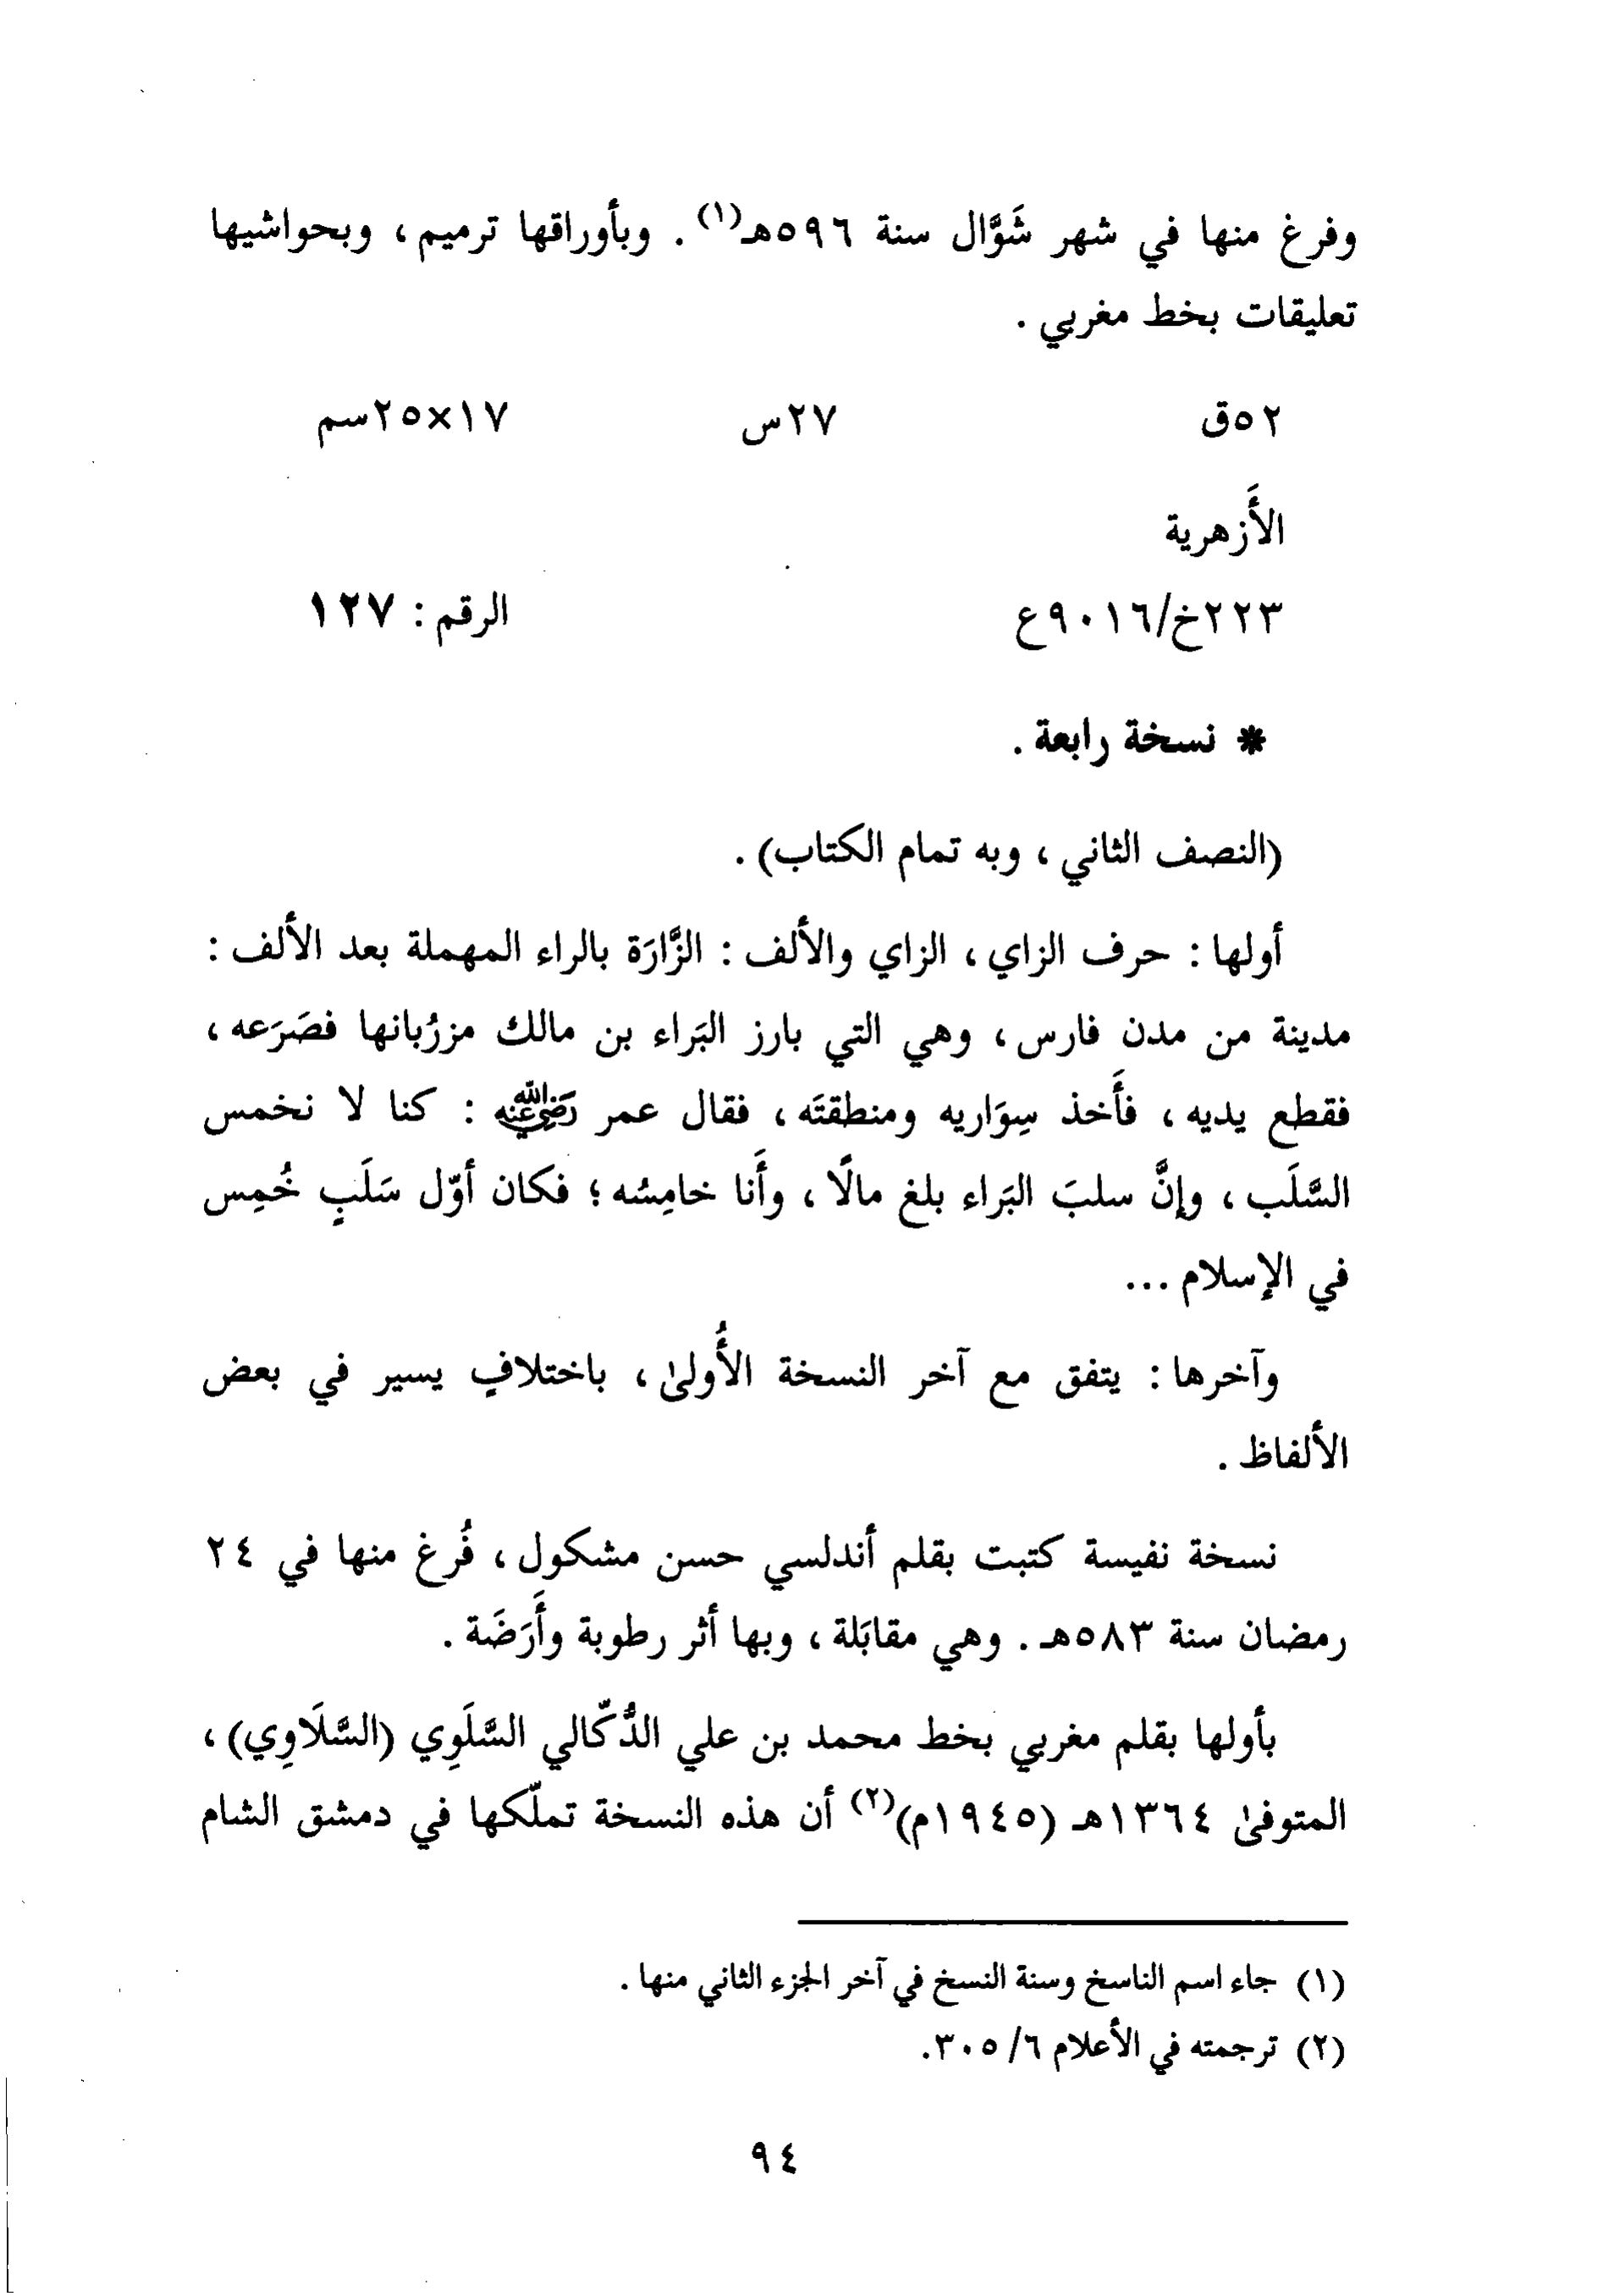 وفرغ منها في شهر شَوَّال سنة ٥٩٦هـ(١) . وبأوراقها ترميم ، وبحواشيها
تعليقات بخط مغربي .
٥٢ق ٢٧س ١٧×٢٥سم
الأَزهرية
٢٢٣خ/٩٠١٦ع الرقم : ١٢٧
* نسخة رابعة .
(النصف الثاني ، وبه تمام الكتاب) .
أولها : حرف الزاي ، الزاي والألف : الزَّارَة بالراء المهملة بعد الألف :
مدينة من مدن فارس ، وهي التي بارز البَراء بن مالك مزرُبانها فصَرَعه ،
فقطع يديه ، فأَخذ سِوَاريه ومنطقتَه ، فقال عمر رَضِيَ اللهُ عَنْه : كنا لا نخمس
السَّلَب ، وإنَّ سلبَ البَراء بلغ مالًا ، وأَنا خامِسُه ؛ فكان أوّل سَلَبٍ خُمِس
في الإسلام ...
وآخرها : يتفق مع آخر النسخة الأُولىٰ ، باختلافٍ يسير في بعض
الألفاظ .
نسخة نفيسة كتبت بقلم أندلسي حسن مشكول ، فُرغ منها في ٢٤
رمضان سنة ٥٨٣هـ . وهي مقابَلة ، وبها أثر رطوبة وأَرَضَة .
بأولها بقلم مغربي بخط محمد بن علي الدُّكّالي السَّلَوِي (السَّلَاوِي) ،
المتوفىٰ ١٣٦٤هـ (١٩٤٥م)(٢) أن هذه النسخة تملّكها في دمشق الشام
(١) جاء اسم الناسخ وسنة النسخ في آخر الجزء الثاني منها .
(٢) ترجمته في الأعلام ٦/ ٣٠٥.
٩٤